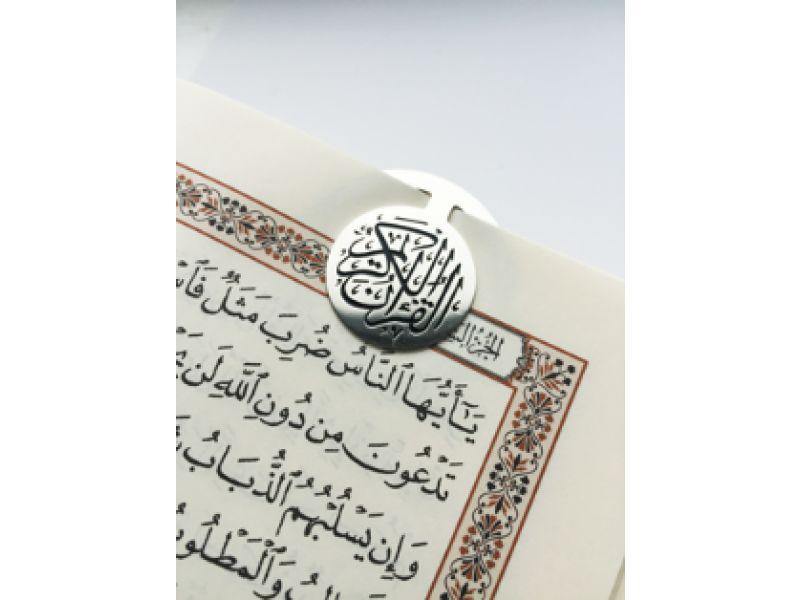 القرآن الكريم
الجزء
يَـٰٓأَيُّهَا ٱلنَّاسُ ضُرِبَ مَثَلٌ
تَدْعُونَ مِن دُونِ ٱللَّهِ لَن
وَإِن يَسْلُبْهُمُ ٱلذُّبَابُ
وَٱلْمَطْلُوبُ